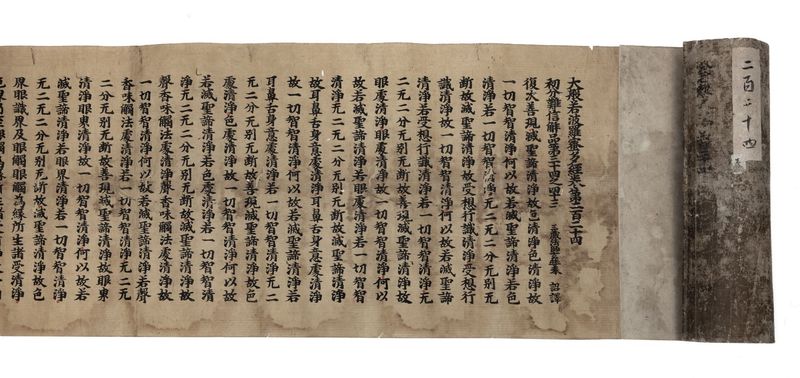 二百二十四
大般若波羅蜜多經卷第二百二十四
初分難信解品第三十四之四十三 三藏法師玄奘奉 詔譯
復次善現滅聖諦清淨故色清淨色清淨故
一切智智清淨何以故若滅聖諦清淨若色
清淨若一切智智清淨无二无二分无別无
斷故滅聖諦清淨故受想行識清淨受想行
識清淨故一切智智清淨何以故若滅聖諦
清淨若受想行識清淨若一切智智清淨无
二无二分无別无斷故善現滅聖諦清淨故
眼處清淨眼處清淨故一切智智清淨何以
故若滅聖諦清淨若眼處清淨若一切智智
清淨无二无二分无別无斷故滅聖諦清淨
故耳鼻舌身意處清淨耳鼻舌身意處清淨
故一切智智清淨何以故若滅聖諦清淨若
耳鼻舌身意處清淨若一切智智清淨无二
无二分无別无斷故善現滅聖諦清淨故色
處清淨色處清淨故一切智智清淨何以故
若滅聖諦清淨若色處清淨若一切智智清
淨无二无二分无別无斷故滅聖諦清淨故
聲香味觸法處清淨聲香味觸法處清淨故
一切智智清淨何以故若滅聖諦清淨若聲
香味觸法處清淨若一切智智清淨无二无
二分无別无斷故善現滅聖諦清淨故眼界
清淨眼界清淨故一切智智清淨何以故若
滅聖諦清淨若眼界清淨若一切智智清淨
无二无二分无別无斷故滅聖諦清淨故色
界眼識界及眼觸眼觸為緣所生諸受清淨